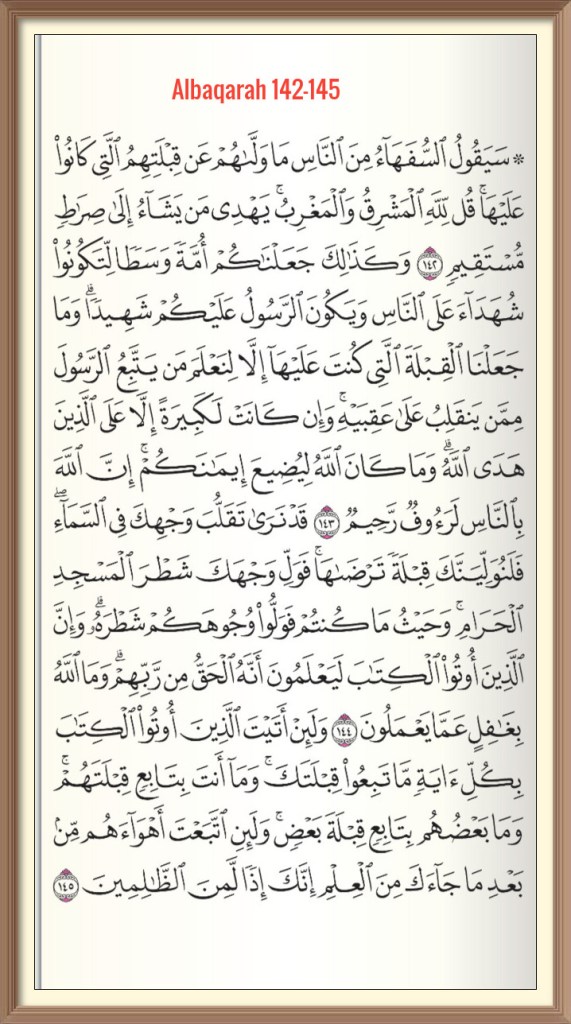 Albaqarah 142-145
۞ سَيَقُولُ ٱلسُّفَهَآءُ مِنَ ٱلنَّاسِ مَا وَلَّىٰهُمْ عَن قِبْلَتِهِمُ ٱلَّتِى كَانُوا۟
عَلَيْهَا ۚ قُل لِّلَّهِ ٱلْمَشْرِقُ وَٱلْمَغْرِبُ ۚ يَهْدِى مَن يَشَآءُ إِلَىٰ صِرَٰطٍ
مُّسْتَقِيمٍ ١٤٢ وَكَذَٰلِكَ جَعَلْنَٰكُمْ أُمَّةً وَسَطًا لِّتَكُونُوا۟
شُهَدَآءَ عَلَى ٱلنَّاسِ وَيَكُونَ ٱلرَّسُولُ عَلَيْكُمْ شَهِيدًا ۗ وَمَا
جَعَلْنَا ٱلْقِبْلَةَ ٱلَّتِى كُنتَ عَلَيْهَآ إِلَّا لِنَعْلَمَ مَن يَتَّبِعُ ٱلرَّسُولَ
مِمَّن يَنقَلِبُ عَلَىٰ عَقِبَيْهِ ۚ وَإِن كَانَتْ لَكَبِيرَةً إِلَّا عَلَى ٱلَّذِينَ
هَدَى ٱللَّهُ ۗ وَمَا كَانَ ٱللَّهُ لِيُضِيعَ إِيمَٰنَكُمْ ۚ إِنَّ ٱللَّهَ
بِٱلنَّاسِ لَرَءُوفٌ رَّحِيمٌ ١٤٣ قَدْ نَرَىٰ تَقَلُّبَ وَجْهِكَ فِى ٱلسَّمَآءِ ۖ
فَلَنُوَلِّيَنَّكَ قِبْلَةً تَرْضَىٰهَا ۚ فَوَلِّ وَجْهَكَ شَطْرَ ٱلْمَسْجِدِ
ٱلْحَرَامِ ۚ وَحَيْثُ مَا كُنتُمْ فَوَلُّوا۟ وُجُوهَكُمْ شَطْرَهُۥ ۗ وَإِنَّ
ٱلَّذِينَ أُوتُوا۟ ٱلْكِتَٰبَ لَيَعْلَمُونَ أَنَّهُ ٱلْحَقُّ مِن رَّبِّهِمْ ۗ وَمَا ٱللَّهُ
بِغَٰفِلٍ عَمَّا يَعْمَلُونَ ١٤٤ وَلَئِنْ أَتَيْتَ ٱلَّذِينَ أُوتُوا۟ ٱلْكِتَٰبَ
بِكُلِّ ءَايَةٍ مَّا تَبِعُوا۟ قِبْلَتَكَ ۚ وَمَآ أَنتَ بِتَابِعٍ قِبْلَتَهُمْ ۚ
وَمَا بَعْضُهُم بِتَابِعٍ قِبْلَةَ بَعْضٍ ۚ وَلَئِنِ ٱتَّبَعْتَ أَهْوَآءَهُم مِّنۢ
بَعْدِ مَا جَآءَكَ مِنَ ٱلْعِلْمِ إِنَّكَ إِذًا لَّمِنَ ٱلظَّٰلِمِينَ ١٤٥